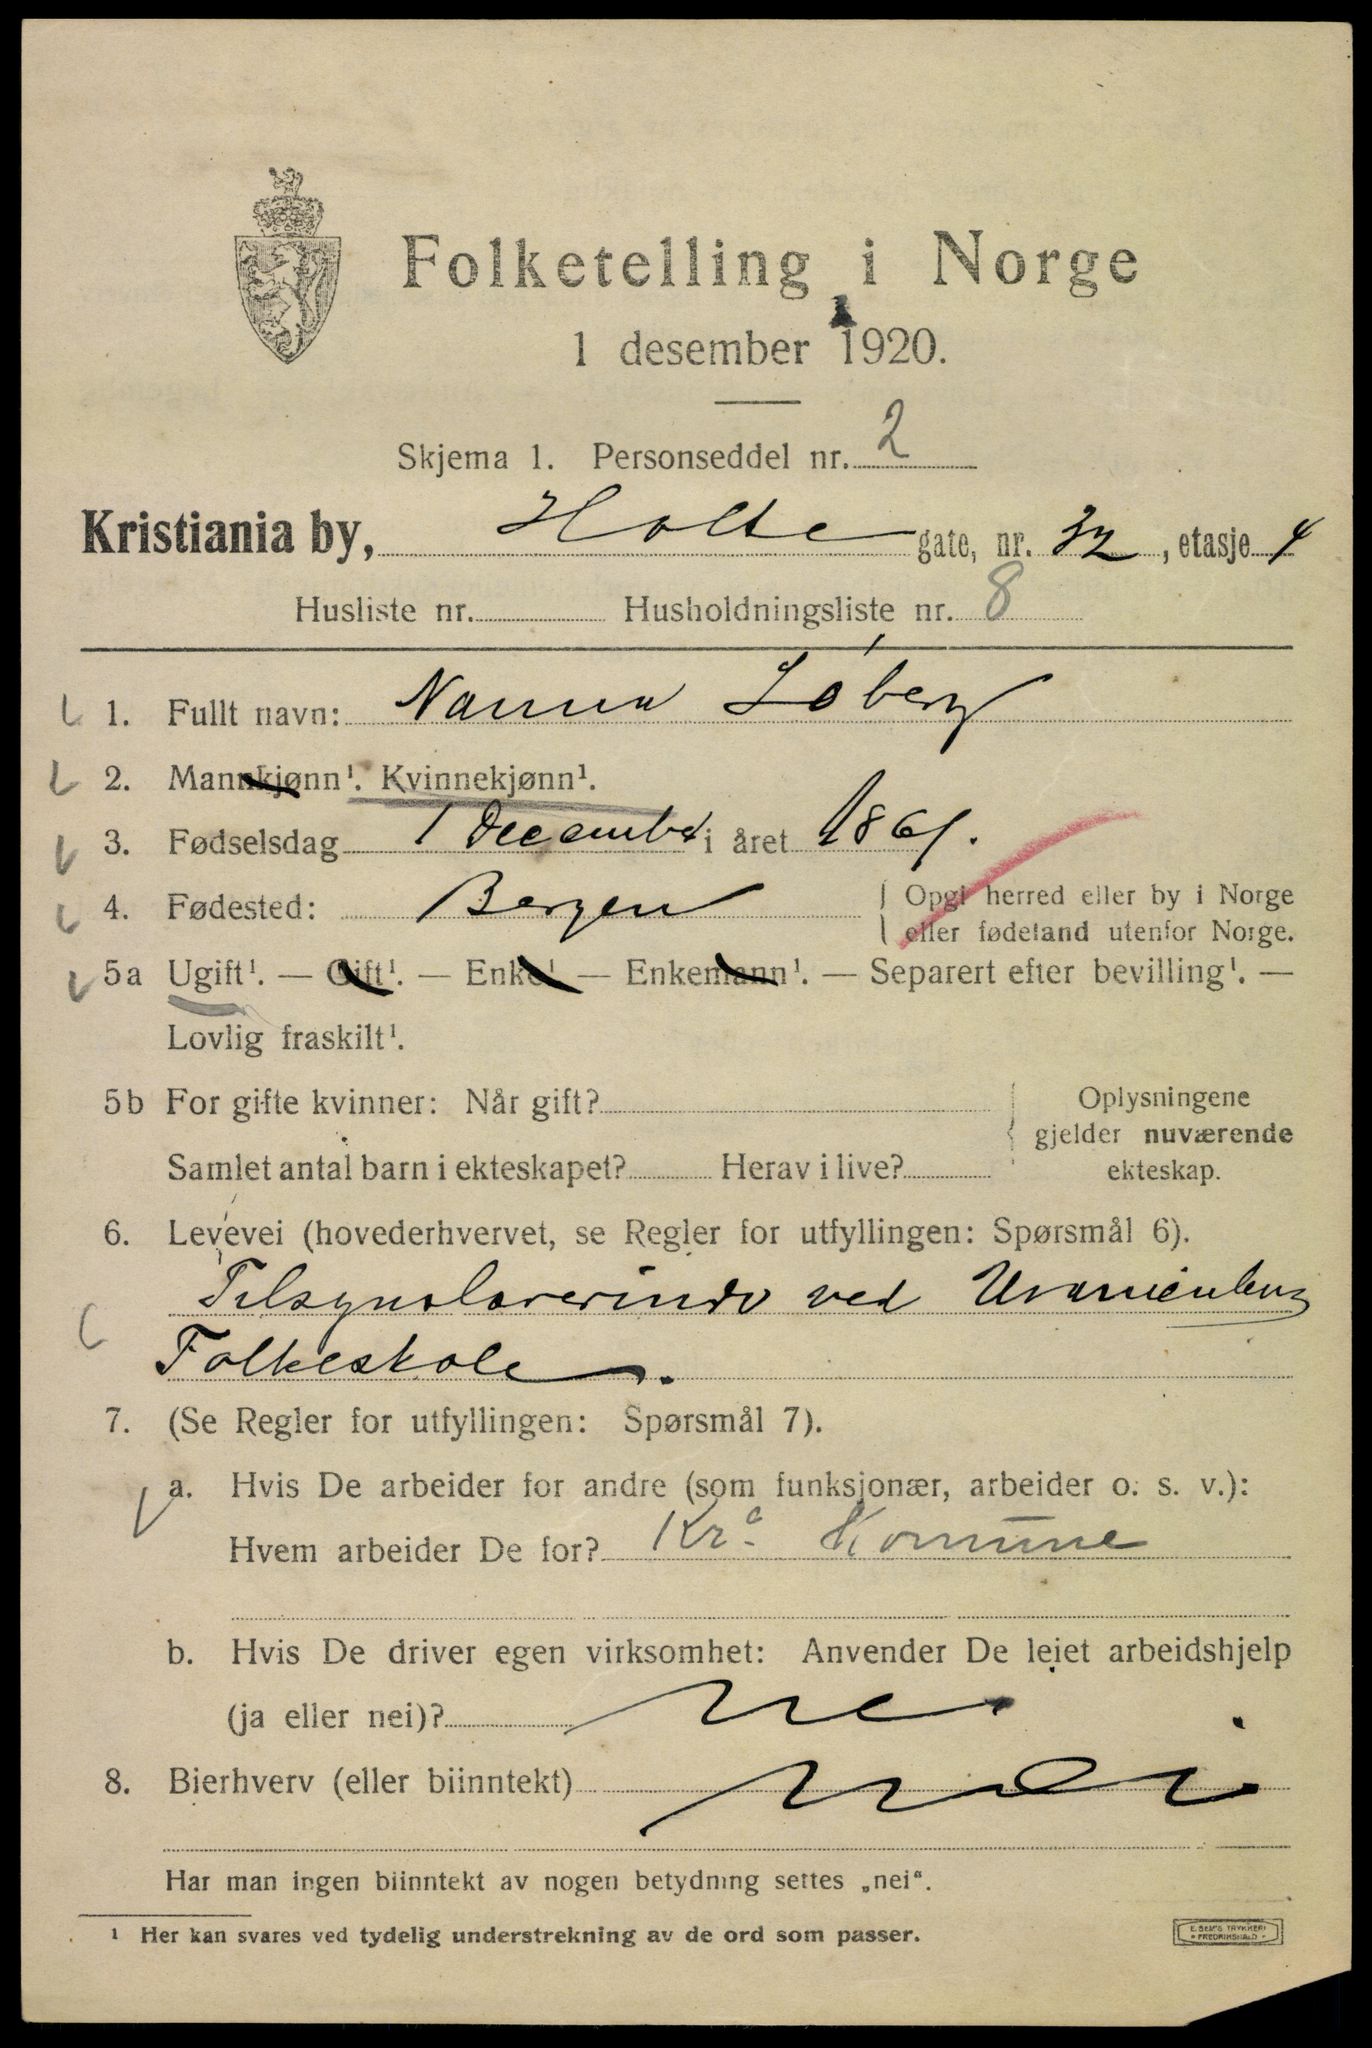 Folketelling i Norge
1 desember 1920.
Skjema 1. Personseddel nr. 2
Kristiania by, Holte gate, nr. 32, etasje 4
Husliste nr. Husholdningsliste nr. 8
1. Fullt navn: Nanna Løberg
2. Mannkjønn¹. Kvinnekjønn¹.
3. Fødselsdag 1 December i året 1861.
4. Fødested: Bergen { Opgi herred eller by i Norge
eller fødeland utenfor Norge.
5a Ugift¹. — Gift¹. — Enke¹ — Enkemann¹. — Separert efter bevilling¹. —
Lovlig fraskilt¹.
5b For gifte kvinner: Når gift? { Oplysningene
gjelder nuværende
Samlet antal barn i ekteskapet? Herav i live? ekteskap.
6. Levevei (hovederhvervet, se Regler for utfyllingen: Spørsmål 6).
Tilsynslærerinde ved Uranienborg
Folkeskole.
7. (Se Regler for utfyllingen: Spørsmål 7).
a. Hvis De arbeider for andre (som funksjonær, arbeider o. s. v.):
Hvem arbeider De for? Kr.a Komune
b. Hvis De driver egen virksomhet: Anvender De leiet arbeidshjelp
(ja eller nei)? nei
8. Bierhverv (eller biinntekt) nei
Har man ingen biinntekt av nogen betydning settes „nei“.
¹ Her kan svares ved tydelig understrekning av de ord som passer.
E. SEM'S TRYKKERI
• FREDRIKSHALD •